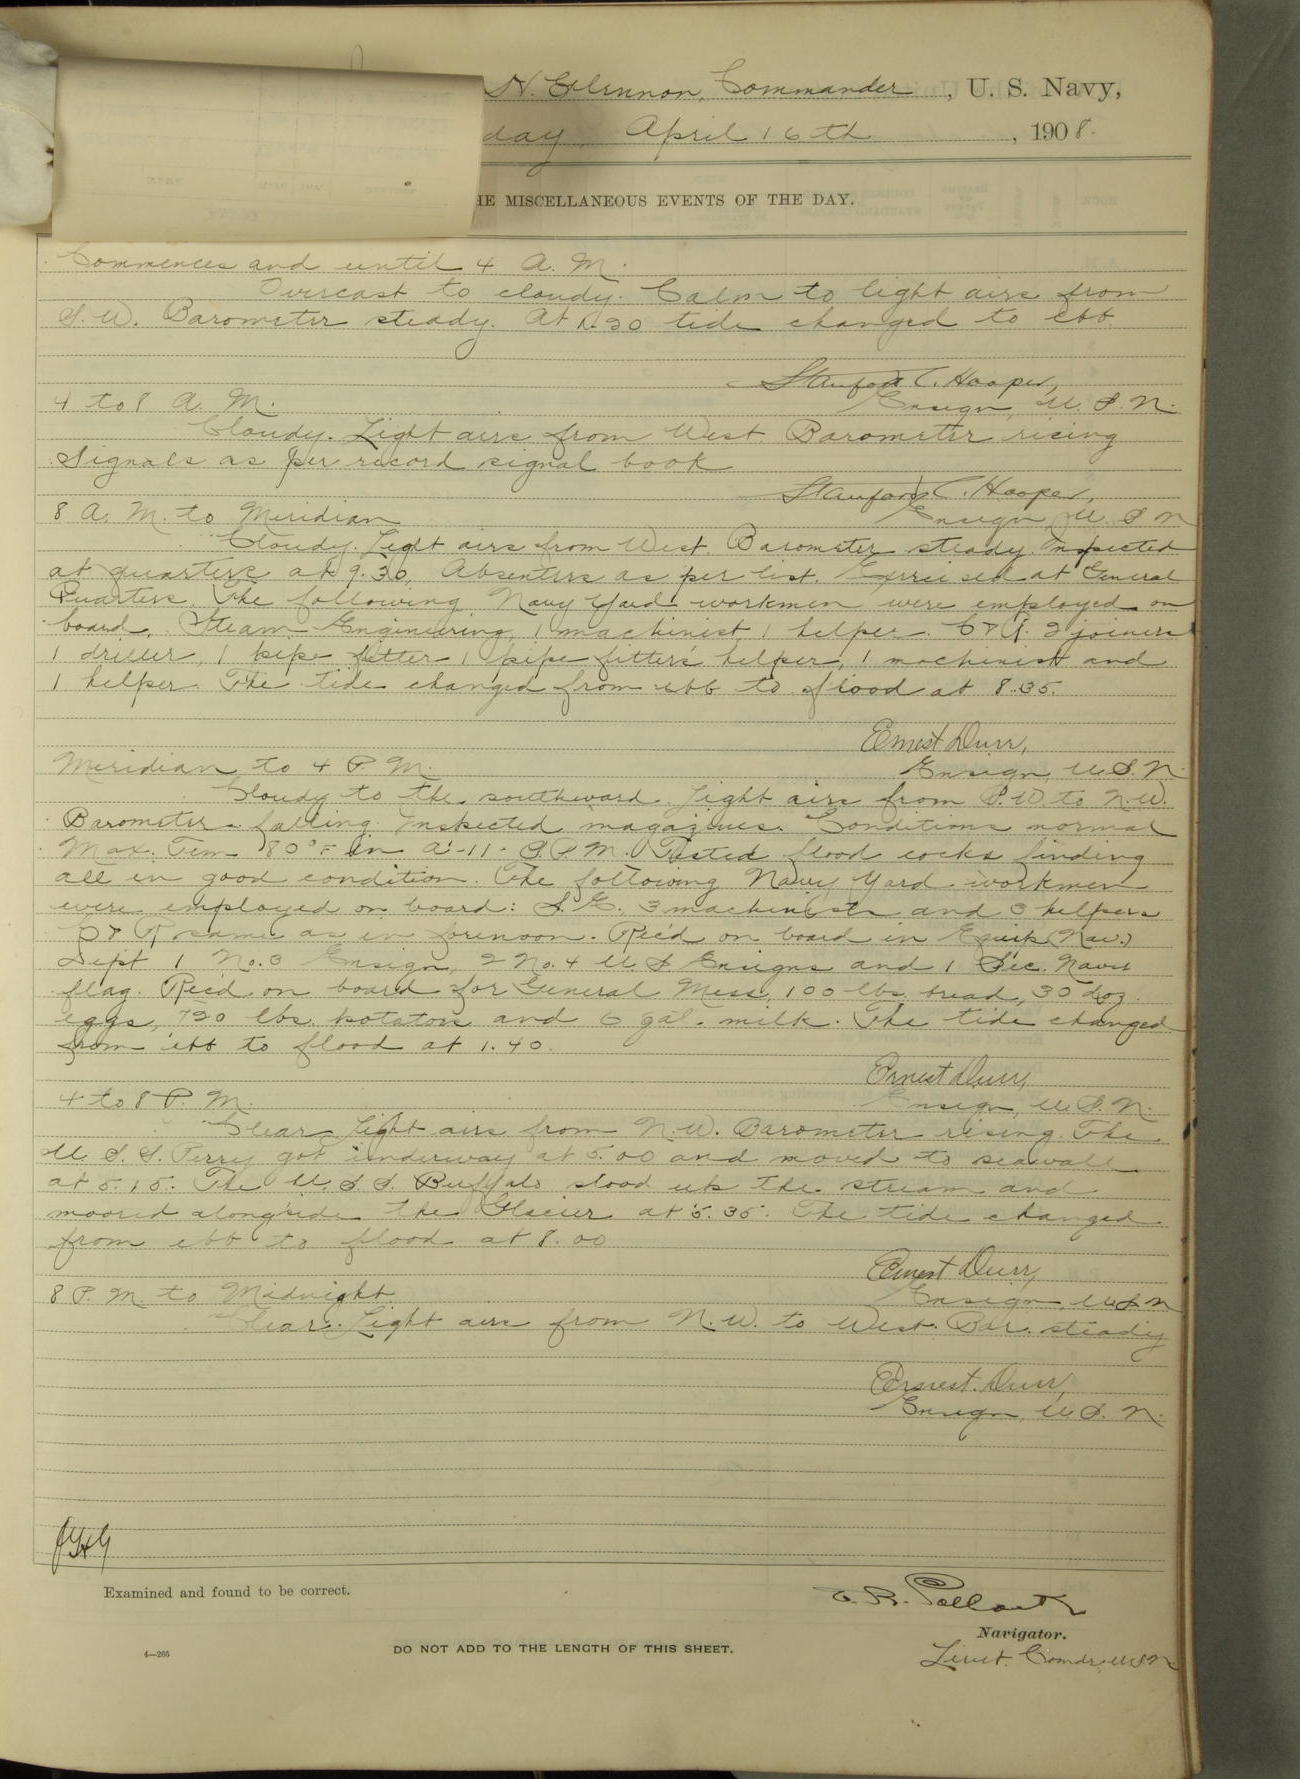 H. Glennon, Commander, U. S. Navy,
day, April 16th, 1908.
HE MISCELLANEOUS EVENTS OF THE DAY.
Commences and until 4 A. M.
Overcast to cloudy. Calm to light airs from
S. W. Barometer steady. At 1.20 tide changed to ebb.
Stanford C. Hooper,
4 to 8 A. M.
Ensign, U. S. N.
Cloudy. Light airs from West Barometer rising
Signals as per record signal book
Stanford C. Hooper,
8 A. M. to Meridian
Ensign U. S. N
Cloudy. Light airs from West. Barometer steady. Inspected
at quarters at 9.30. Absentees as per list. Exercised at General
Quarters. The following Navy Yard workmen were employed on
board. Steam Engineering, 1 machinist, 1 helper. C & R. 2 joiners
1 driller, 1 pipe fitter 1 pipe fitter's helper, 1 machinist and
1 helper. The tide changed from ebb to flood at 8.35.
Ernest Durr,
Meridian to 4 P. M.
Ensign U. S. N.
Cloudy to the southward. Light airs from S. W. to N. W.
Barometer falling. Inspected magazines. Conditions normal
Max. Tem 80°F in A-11- P.M. Tested flood cocks finding
all in good condition. The following Navy Yard workmen
were employed on board: S. E., 3 machinists and 3 helpers
C & R same as in forenoon. Rec'd on board in Equip (Nav.)
Dept 1 No. 3 Ensign, 2 No. 4 U. S Ensigns and 1 Sec. Navy
flag. Rec'd on board for General Mess, 100 lbs bread, 30 doz.
eggs, 720 lbs. potatoes and 6 gal. milk. The tide changed
from ebb to flood at 1.40.
Ernest Durr,
4 to 8 P. M.
Ensign, U. S. N.
Clear Light airs from N. W. Barometer rising. The
U. S. S. Perry got underway at 5.00 and moved to seawall
at 5.15. The U. S. S. Buffalo stood up the stream and
moored alongside the Glacier at 5.35. The tide changed
from ebb to flood at 8.00
Ernest Durr,
8 P. M. to Midnight
Ensign U S N
Clear. Light airs from N. W. to West. Bar. steady
Ernest Durr,
Ensign, U. S. N.
Examined and found to be correct.
Navigator.
4—265
DO NOT ADD TO THE LENGTH OF THIS SHEET.
Lieut. Comdr. U S N